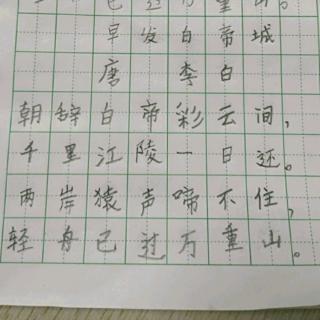 已过万重山。
早发白帝城
唐 李白
朝辞白帝彩云间,
千里江陵一日还。
两岸猿声啼不住,
轻舟已过万重山。